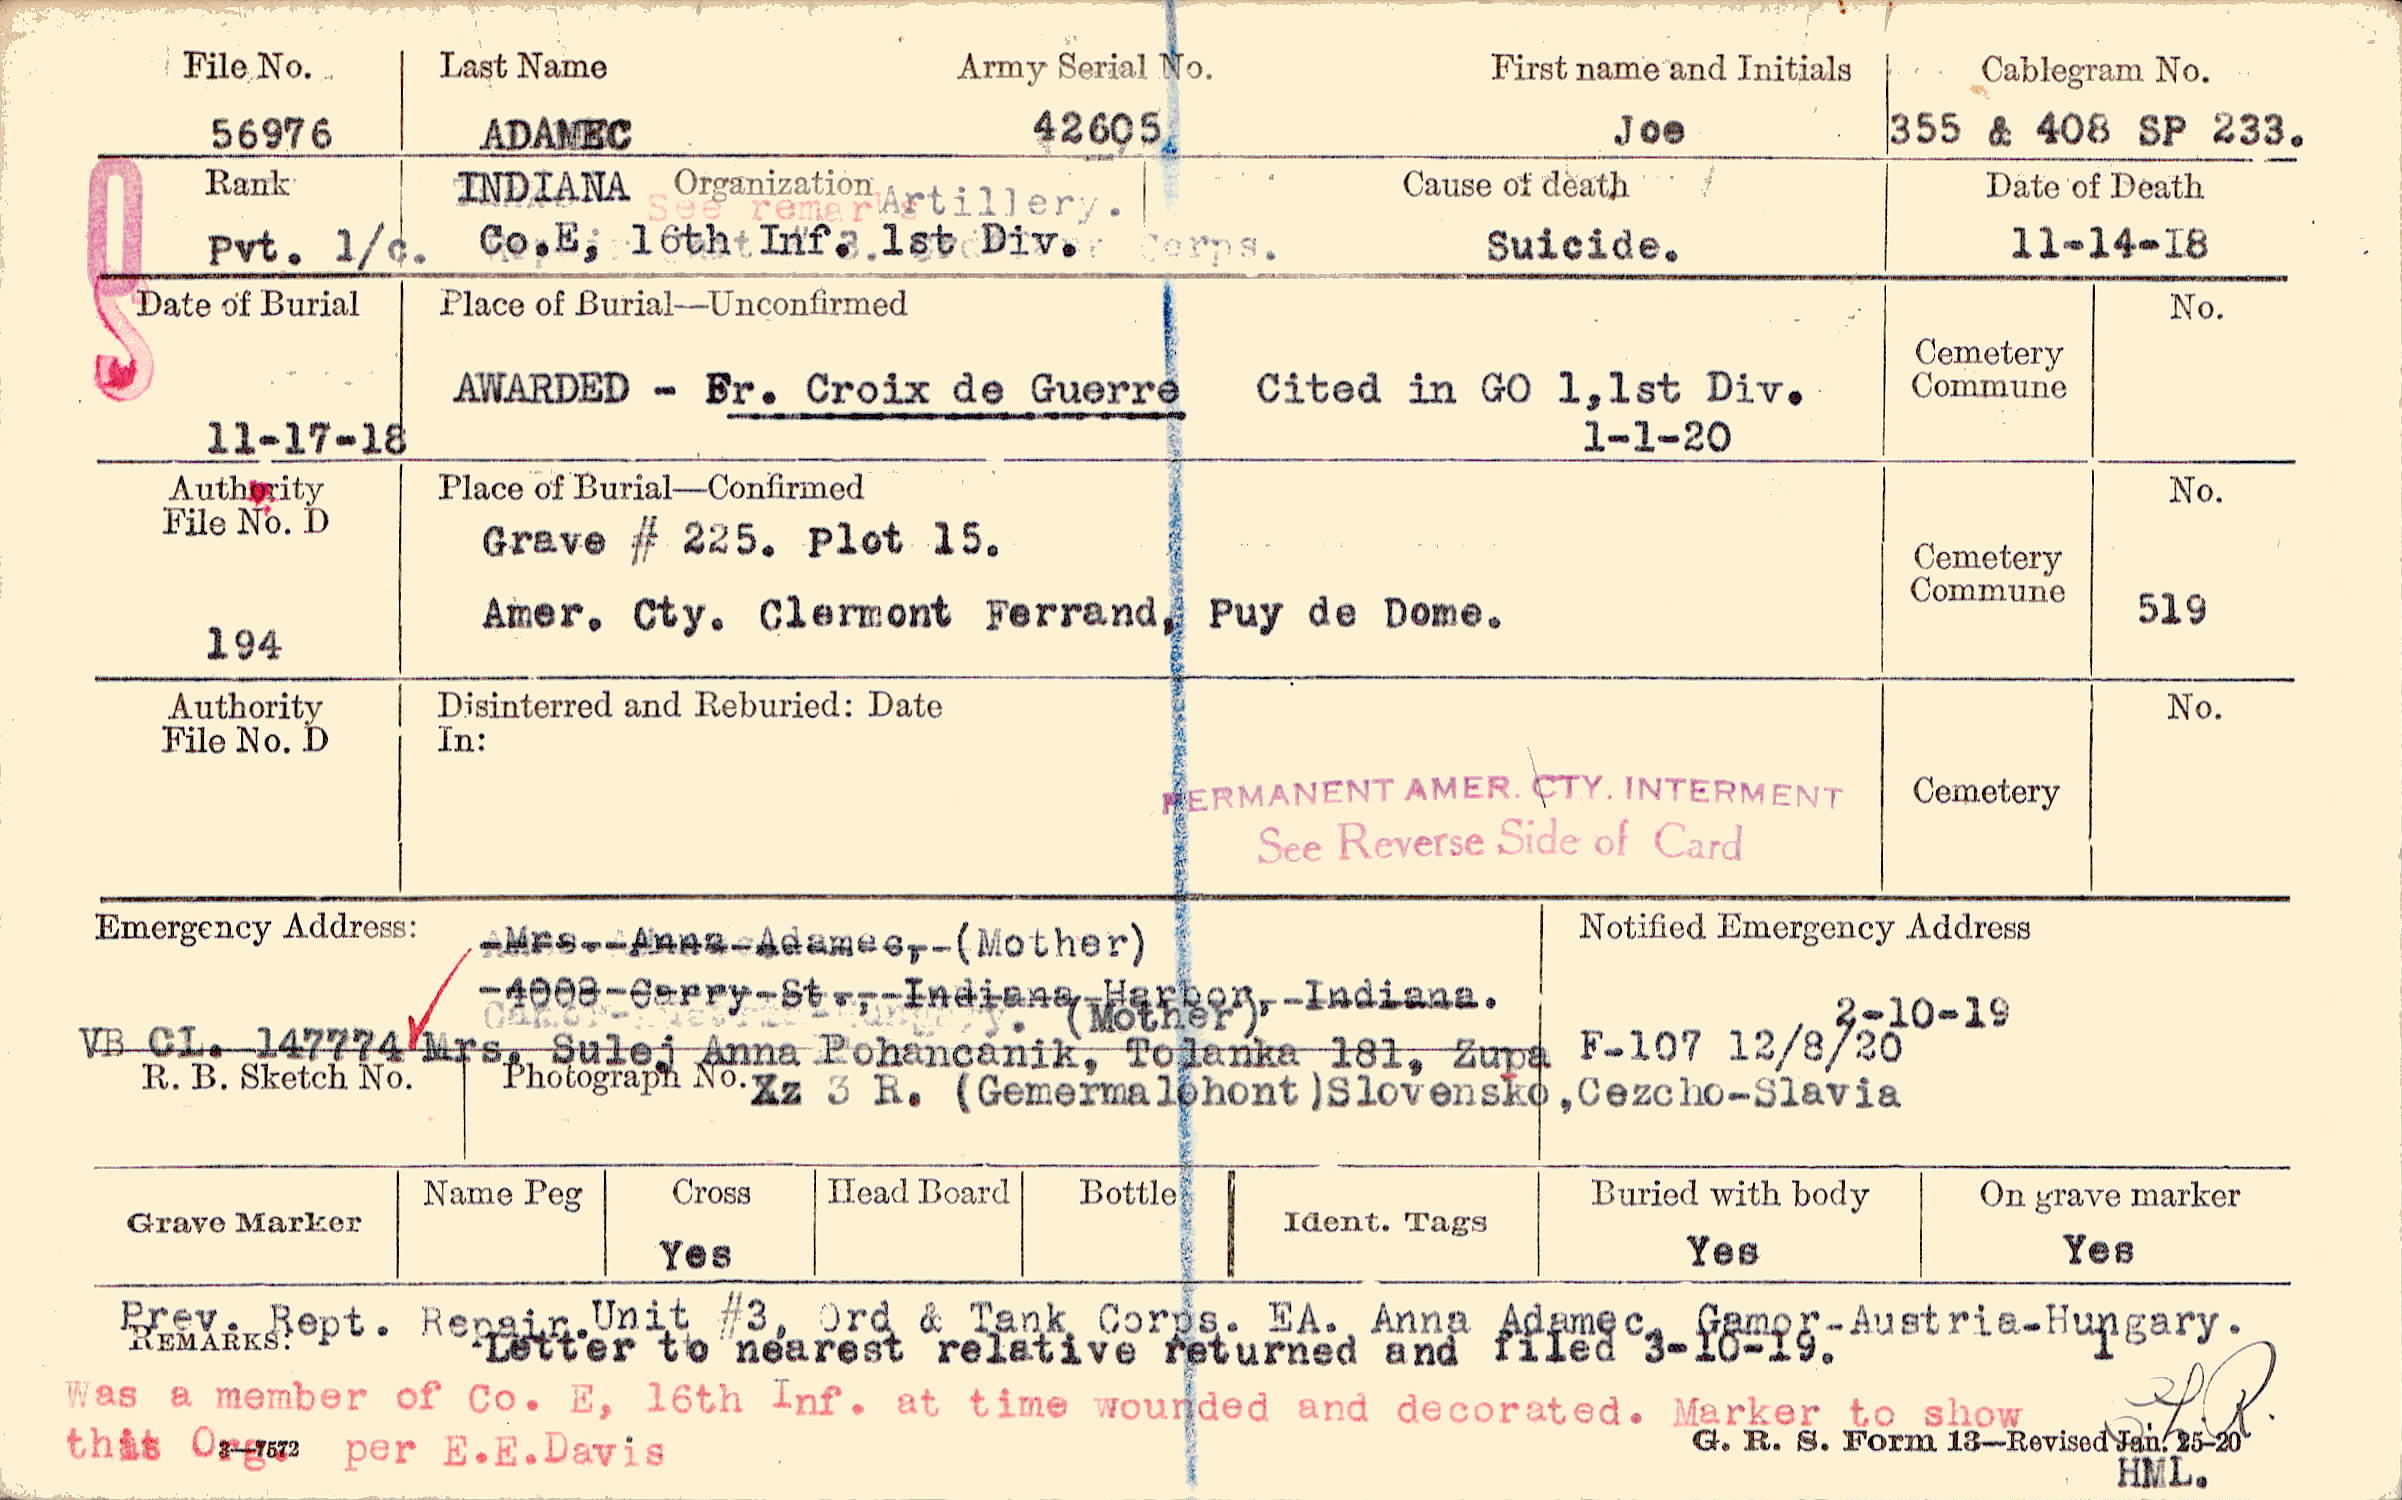 File No. Last Name Army Serial No. First name and Initials Cablegram No.
56976 ADAMEC 42605 Joe 355 & 408 SP 233.
Rank INDIANA Organization Cause of death Date of Death
See remarks Artillery.
Pvt. 1/c. Co.E, 16th Inf. 1st Div. Corps. Suicide. 11-14-18
Date of Burial Place of Burial—Unconfirmed No.
Cemetery
Commune
AWARDED - Fr. Croix de Guerre Cited in GO 1,1st Div.
11-17-18 1-1-20
Authority Place of Burial—Confirmed No.
File No. D
Grave # 225. Plot 15.
Cemetery
Commune
Amer. Cty. Clermont Ferrand, Puy de Dome. 519
194
Authority Disinterred and Reburied: Date No.
File No. D In:
PERMANENT AMER. CTY. INTERMENT Cemetery
See Reverse Side of Card
Emergency Address: Notified Emergency Address
Mrs. Anna Adamec, (Mother)
4008 Carry St., Indiana Harbor, Indiana.
(Mother) 2-10-19
VB CL. 147774 Mrs. Sulej Anna Pohancanik, Tolanka 181, Zupa F-107 12/8/20
R. B. Sketch No. Photograph No. Xz 3 R. (Gemermalohont)Slovensko,Cezcho-Slavia
Grave Marker Name Peg Cross Head Board Bottle Ident. Tags Buried with body On grave marker
Yes Yes Yes
Prev. Rept. Repair.Unit #3, Ord & Tank Corps. EA. Anna Adamec, Gamor-Austria-Hungary.
REMARKS: Letter to nearest relative returned and filed 3-10-19. 1
Was a member of Co. E, 16th Inf. at time wounded and decorated. Marker to show
this Org. per E.E.Davis
3—7572 G. R. S. Form 13—Revised Jan. 25-20
HML.